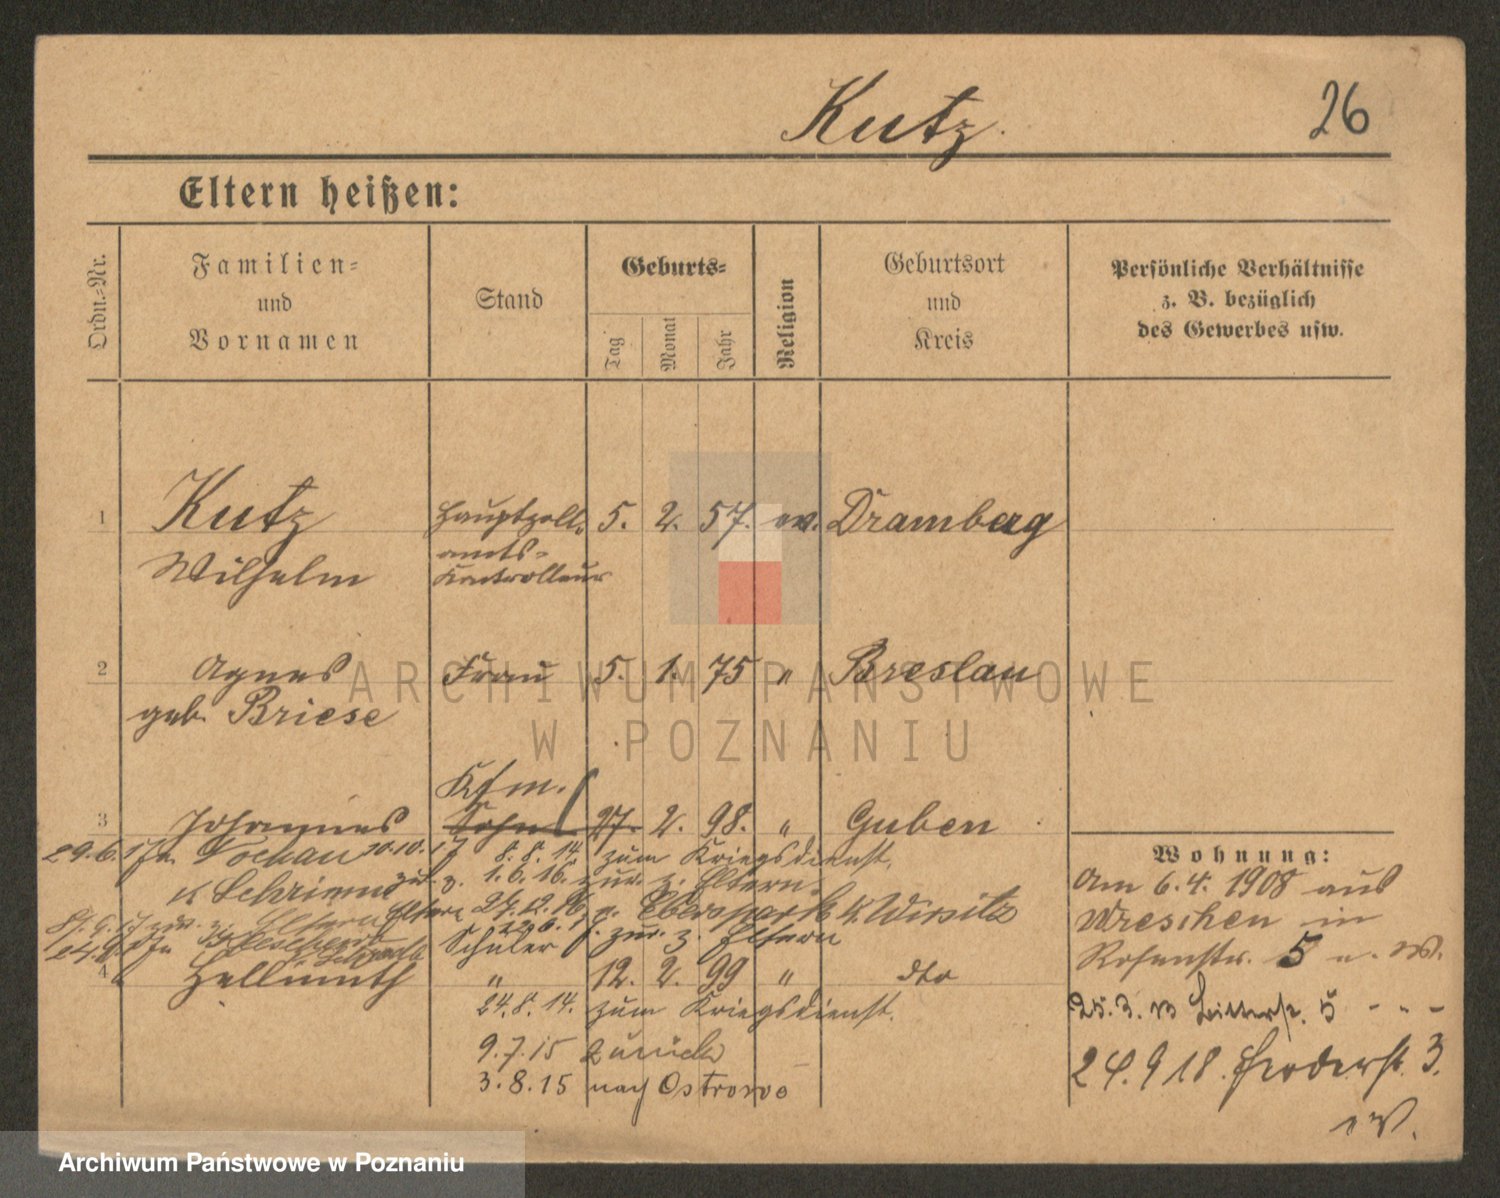 Kutz.
26
Eltern heißen:
Ordn.-Nr.
Familien-
und
Vornamen
Stand
Geburts-
Tag
Monat
Jahr
Religion
Geburtsort
und
Kreis
Persönliche Verhältnisse
z. B. bezüglich
des Gewerbes usw.
1 Kutz Hauptzoll- 5. 2. 57. ev. Dramberg
Wilhelm amts-
Kontrolleur
2 Agnes Frau 5. 1. 75 " Breslau
geb. Briese
Kfm.
3 Johannes Sohn 27. 2. 98. " Guben
29.6.17 n. 10.10.17 8.8.14 zum Kriegsdienst.
zur. z. 1.6.16. zur. z. Eltern.
Eltern 27.12.16 n. K. Wirsitz
Schüler zur. z. Eltern
4 Hellmuth " 12. 2. 99 " dto
24.8.14. zum Kriegsdienst.
9.7.15 zurück
3.8.15 nach Ostrowo
Wohnung:
Am 6.4. 1908 aus
Wreschen in
Rosenstr. 5 n. W.
25.3.13 5 - " -
24.9 18. 3.
n W.
ARCHIWUM PAŃSTWOWE
W POZNANIU
Archiwum Państwowe w Poznaniu